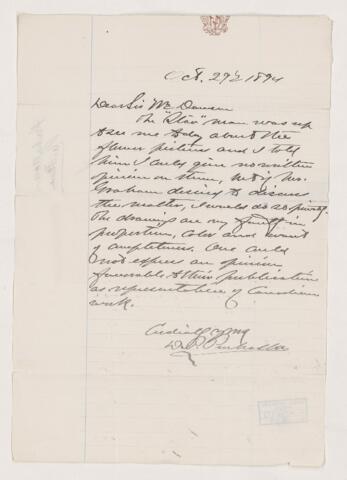 Oct. 29th 1894
Dear Sir Wm Dawson
The "Star" man was up
to see me today about the
flower pictures and I told
him I could give no written
opinion on them, but if Mr.
Graham desired to discuss
the matter, I would do so privately.
The drawings are very faulty in
proportion, color and want
of completeness. One could
not express an opinion
favorable to their publication
as representative of Canadian
work.
Cordially yours
D. P. Penhallow